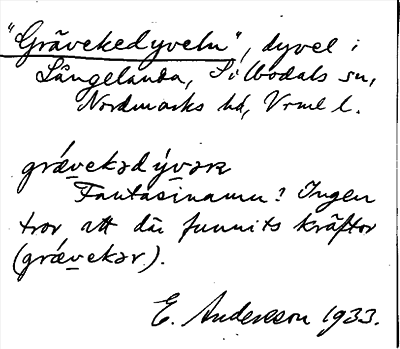 "Grävekedyveln", dyvel i
Långelanda, Sillbodals sn,
Nordmarks hd, Vrml l.
grǽvekədývəṉ
Fantasinamn? Ingen
tror att där funnits kräftor
(grǽvekər).
E. Andersson 1933.